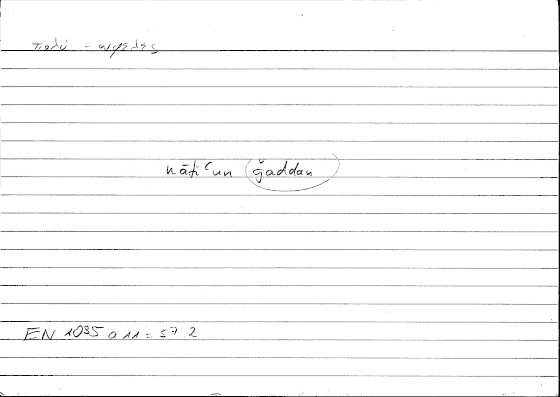 πολύ - ωφελες
nāfiʿun ǧaddan
EN 1095 a 11 = 57.2